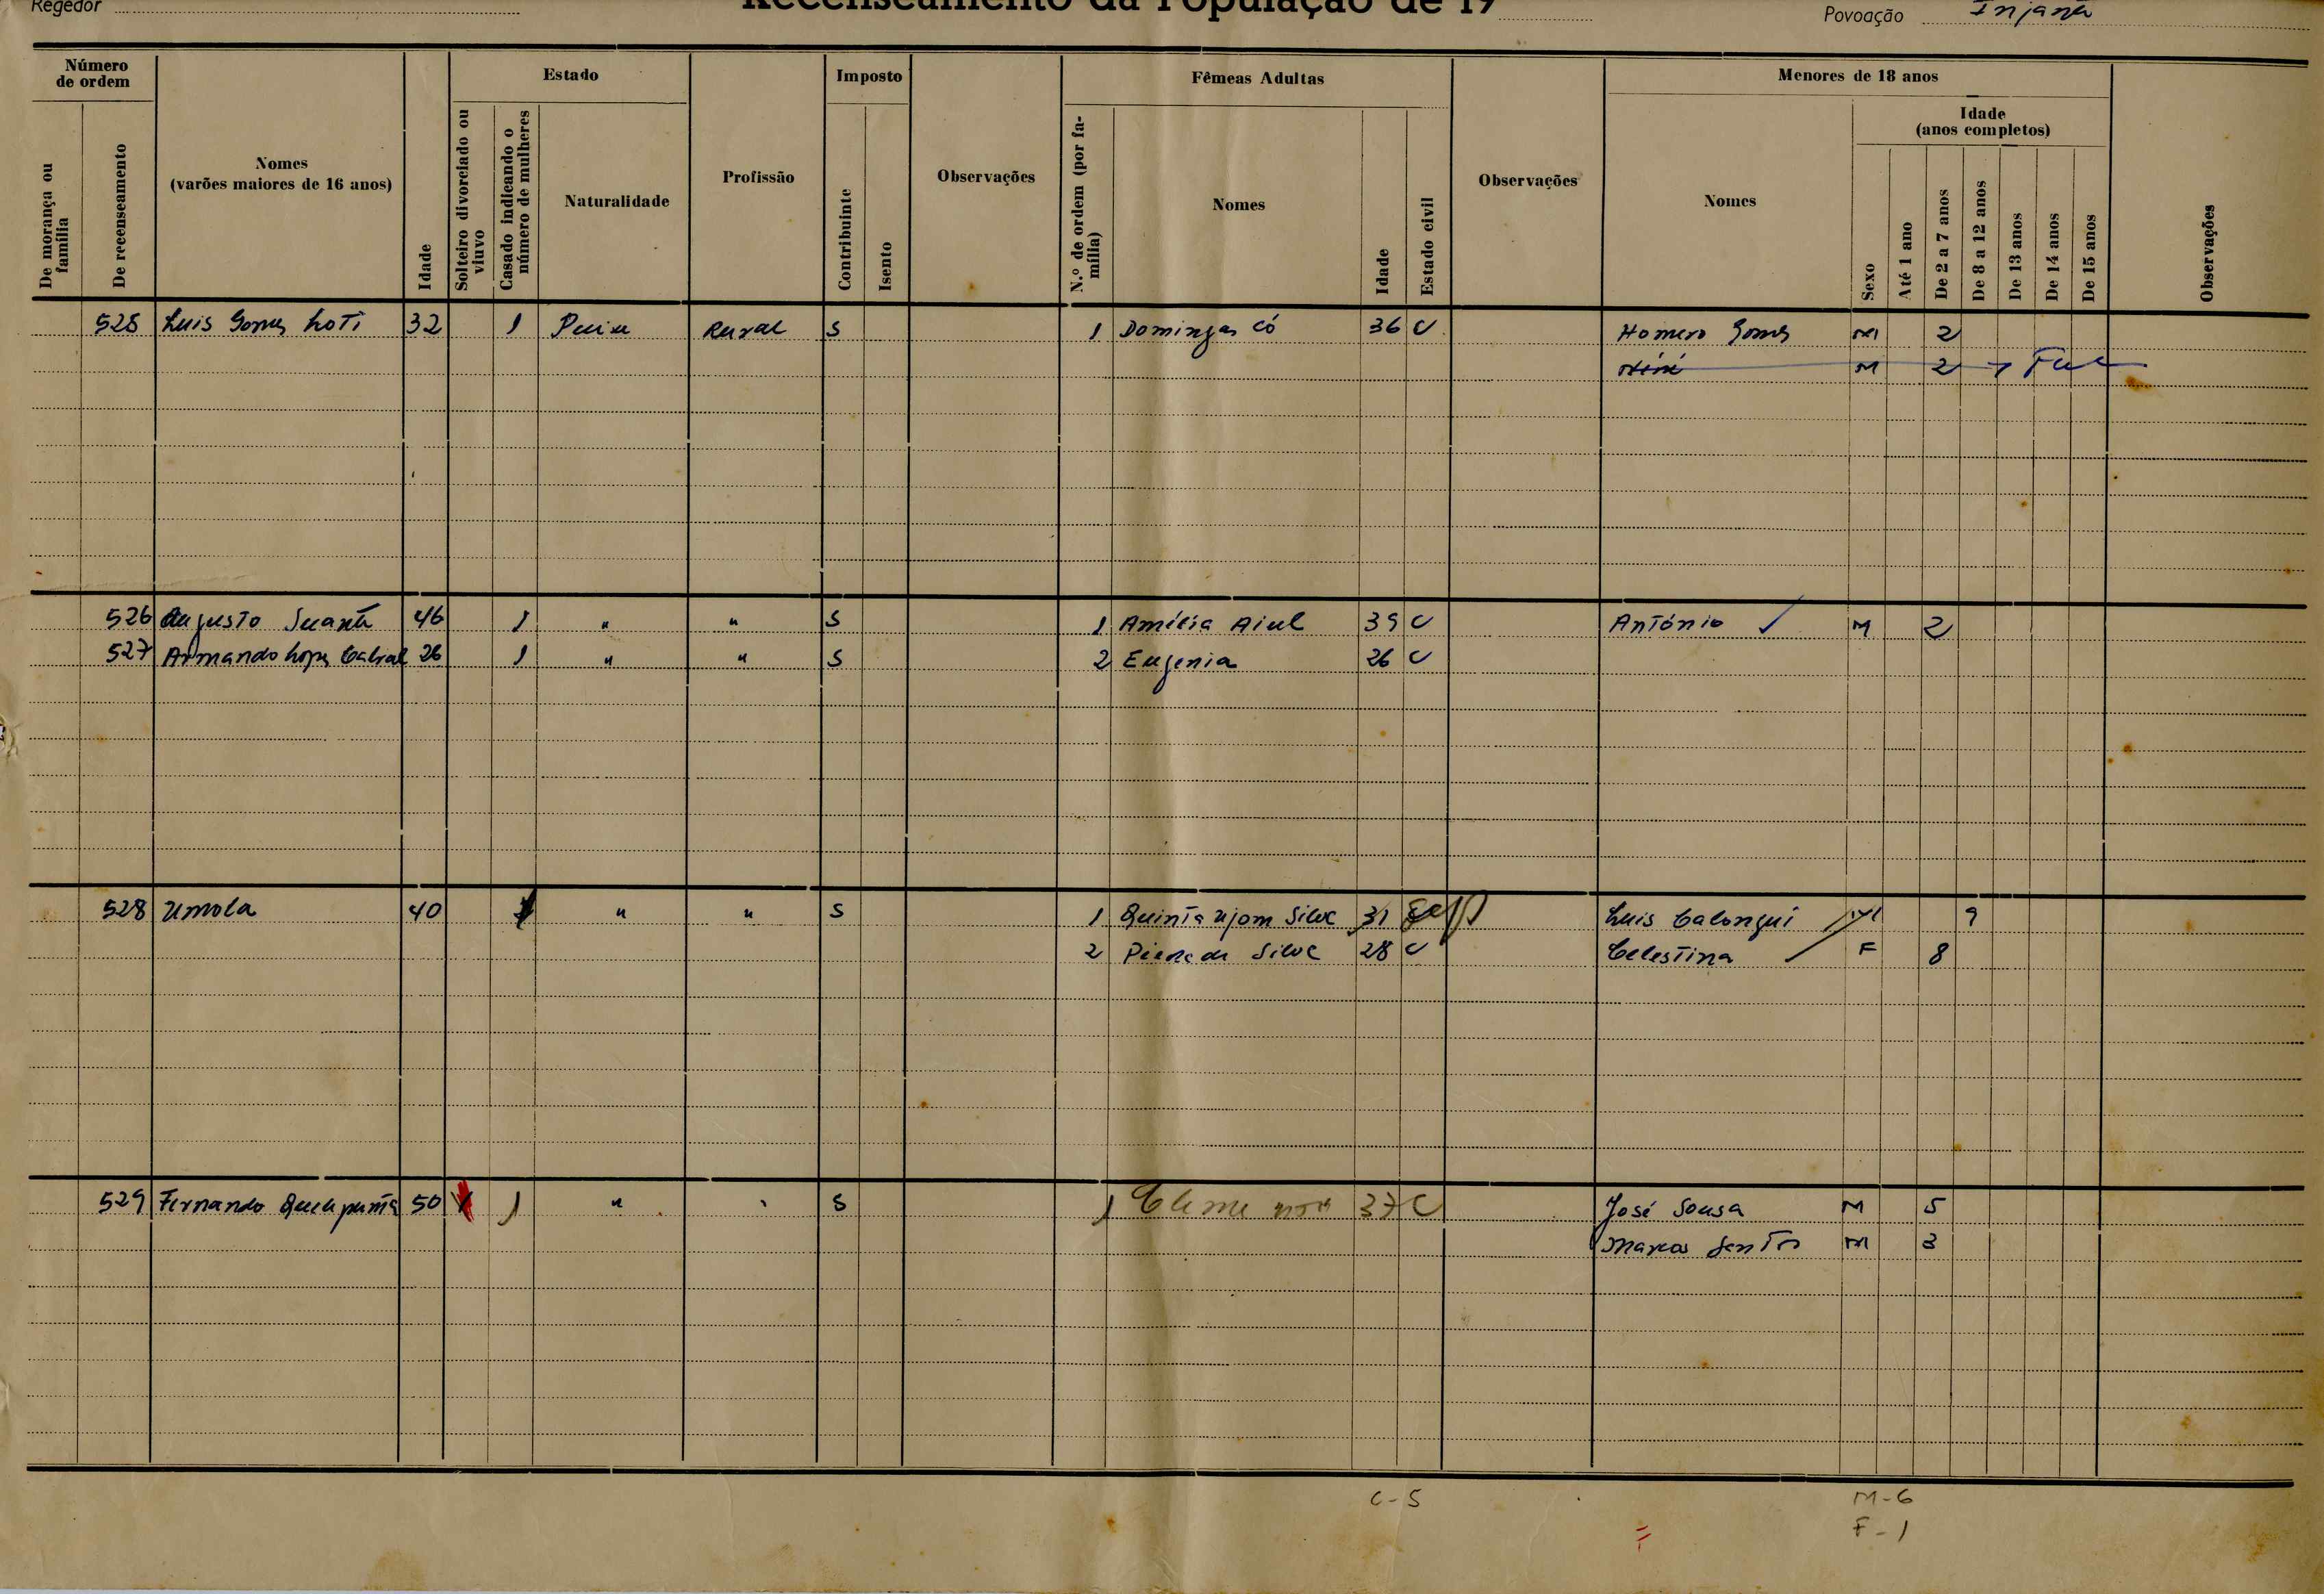 Regedor
Recenseamento da População de 19
Povoação Injanã
Número de ordem
Estado
Imposto
Fêmeas Adultas
Menores de 18 anos
De morança ou família
De recenseamento
Nomes (varões maiores de 16 anos)
Idade
Solteiro divorciado ou viuvo
Casado indicando o número de mulheres
Naturalidade
Profissão
Contribuinte
Isento
Observações
N.º de ordem (por família)
Nomes
Idade
Estado civil
Observações
Nomes
Sexo
Idade (anos completos)
Até 1 ano
De 2 a 7 anos
De 8 a 12 anos
De 13 anos
De 14 anos
De 15 anos
Observações
525 Luis Gomes Loti 32 1 Rural S 1 Domingas Có 36 C Homero Gomes M 2
M 2
526 Augusto 46 1 " " S 1 Amélia Aiul 39 C António M 2
527 Armando Lopes Cabral 26 1 " " S 2 Eugenia 26 C
528 Umola 40 " " S 1 Quinta Njom Silva 31 Luis Calongui M 9
2 Silva 28 C Celestina F 8
529 Fernando 50 1 " S 1 37 C José Sousa M 5
Marcos Santos M 3
C-5 M-6
F-1